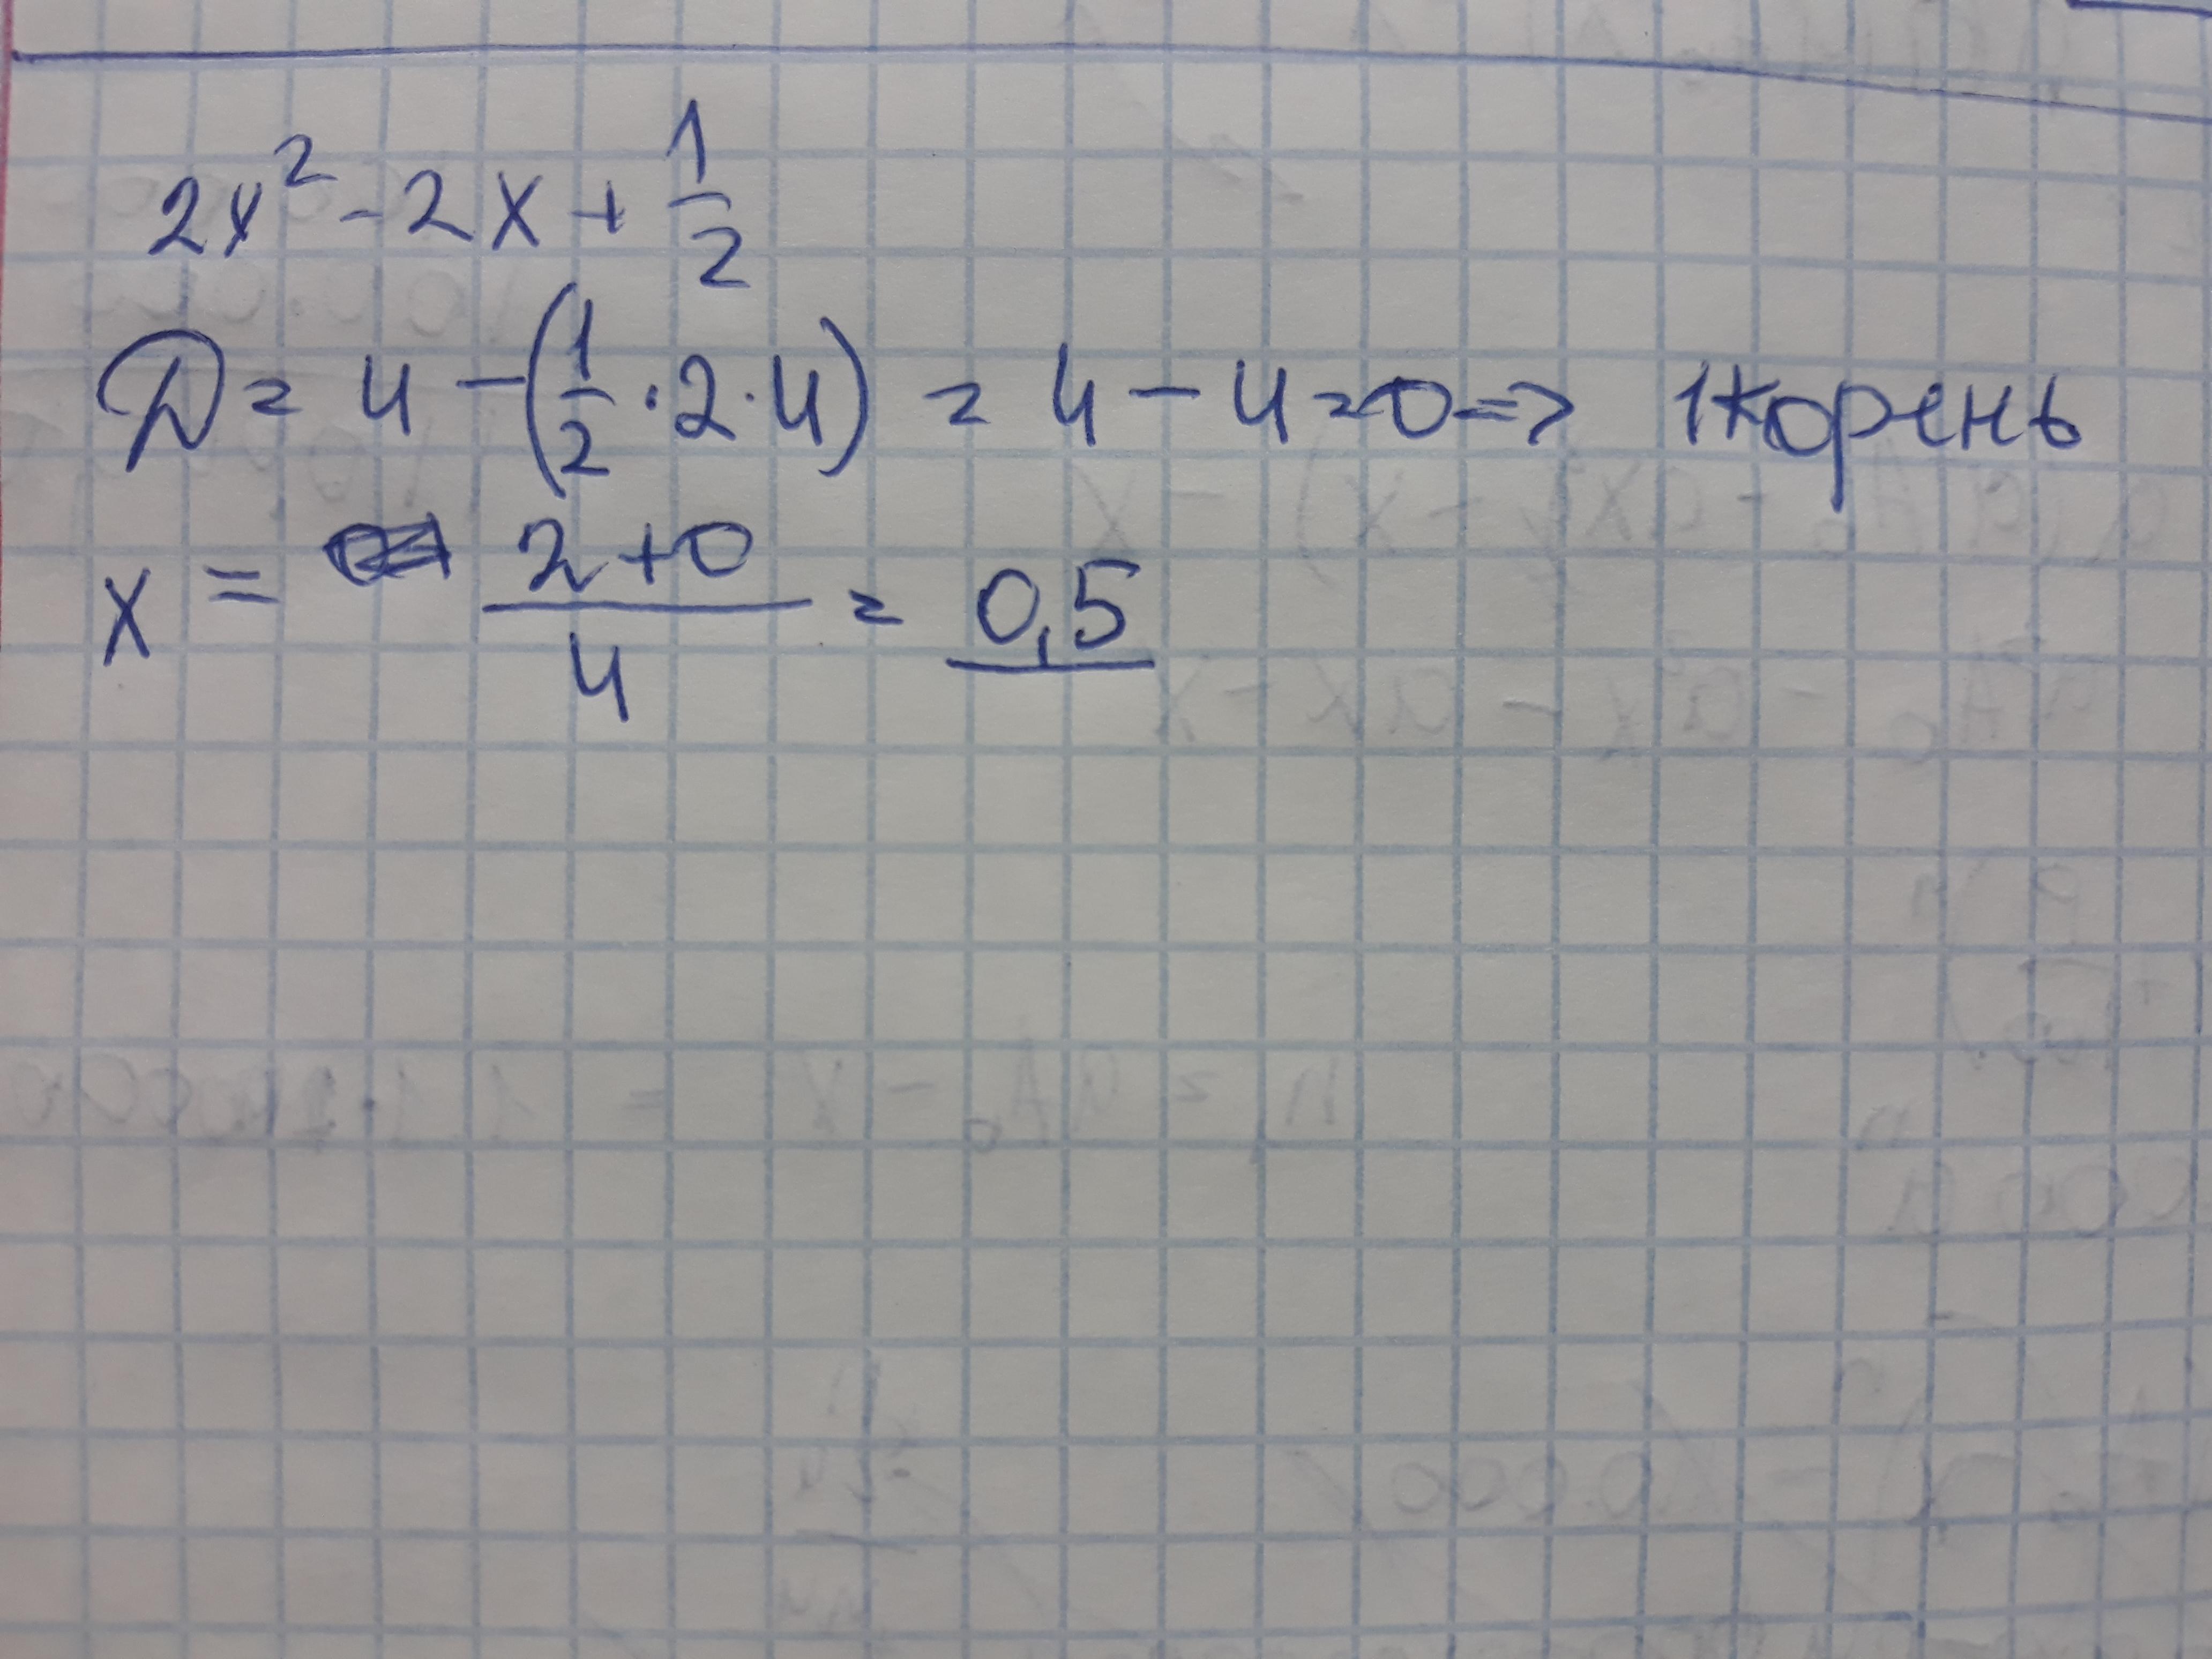 2x² - 2x + 1/2
D = 4 - (1/2 · 2 · 4) = 4 - 4 = 0 => 1 корень
x = (2+0)/4 = 0,5